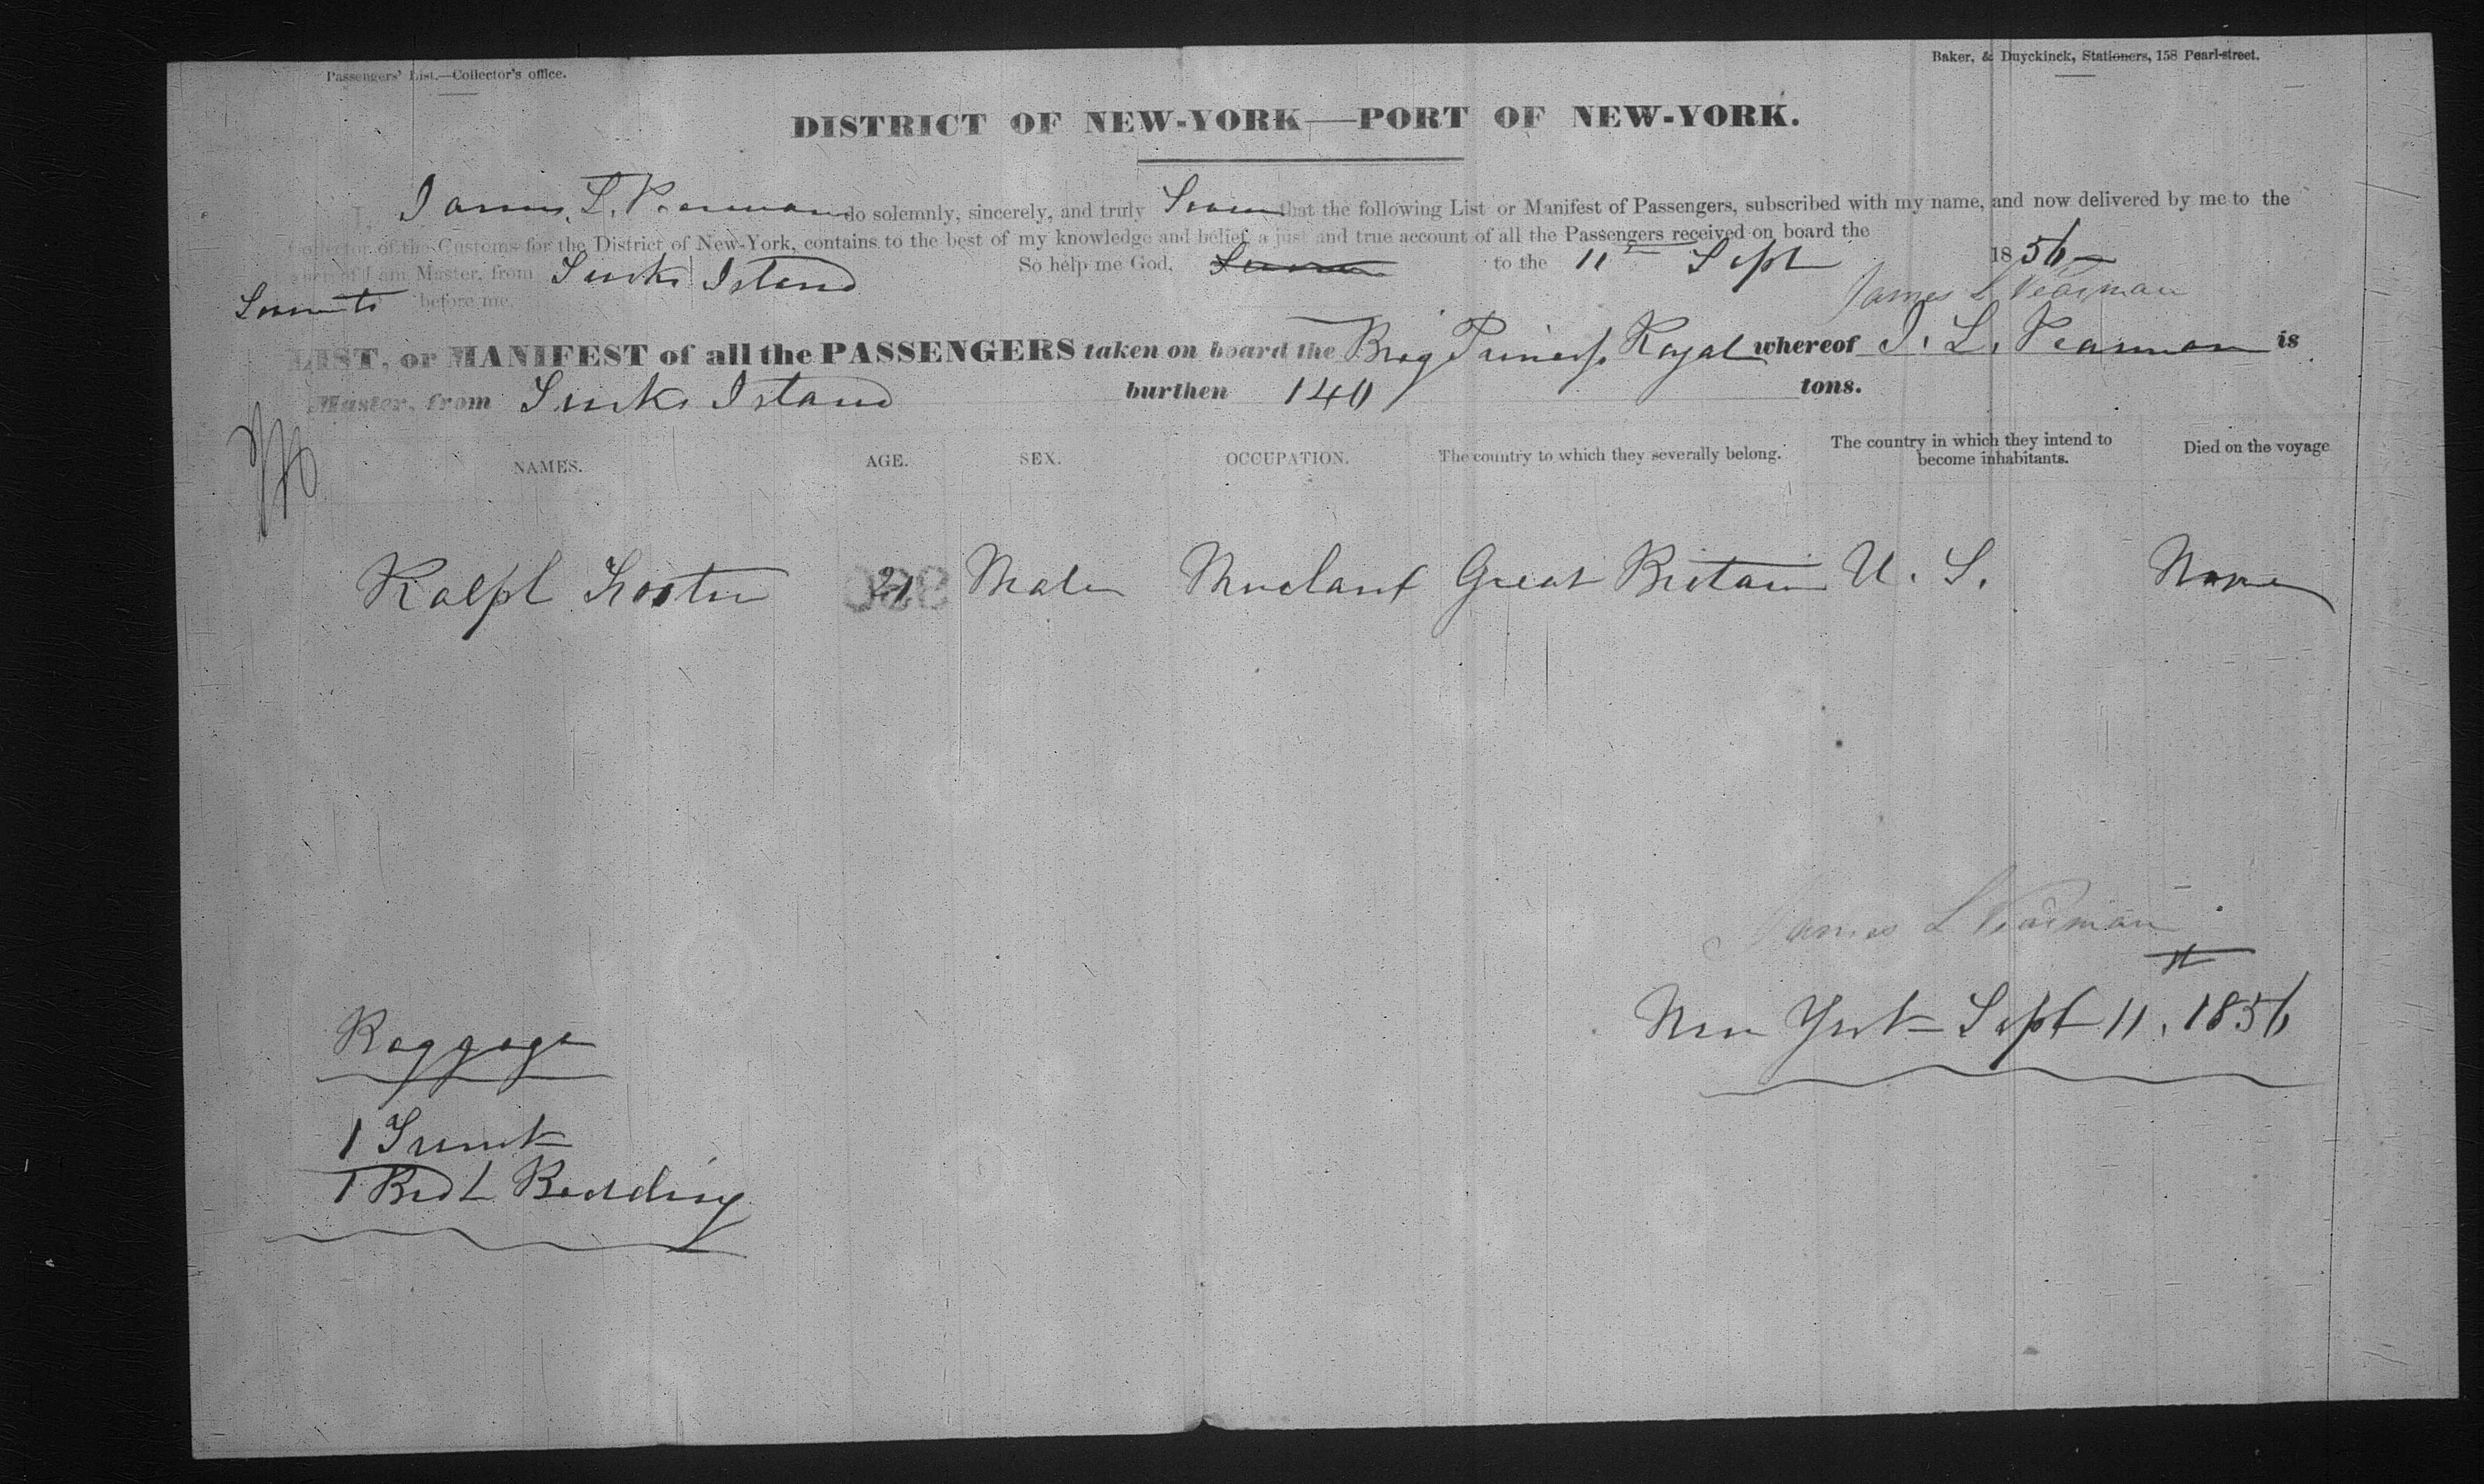 Passengers' List.—Collector's office.
Baker, & Duyckinck, Stationers, 158 Pearl-street.
DISTRICT OF NEW-YORK—PORT OF NEW-YORK.
I, James L. Pearman do solemnly, sincerely, and truly Swear that the following List or Manifest of Passengers, subscribed with my name, and now delivered by me to the
Collector of the Customs for the District of New-York, contains to the best of my knowledge and belief, a just and true account of all the Passengers received on board the
whereof I am Master, from Turks Island So help me God, to the 11th Sept 1856
before me. James L Pearman
LIST, or MANIFEST of all the PASSENGERS taken on board the Brig Princess Royal whereof J. L. Pearman is
Master, from Turks Island burthen 140 tons.
NAMES. AGE. SEX. OCCUPATION. The country to which they severally belong. The country in which they intend to become inhabitants. Died on the voyage
Ralph Foster 21 Male Merchant Great Britain U. S. None
James L Pearman
New York Sept 11, 1856
Baggage
1 Trunk
1 Bed & Bedding